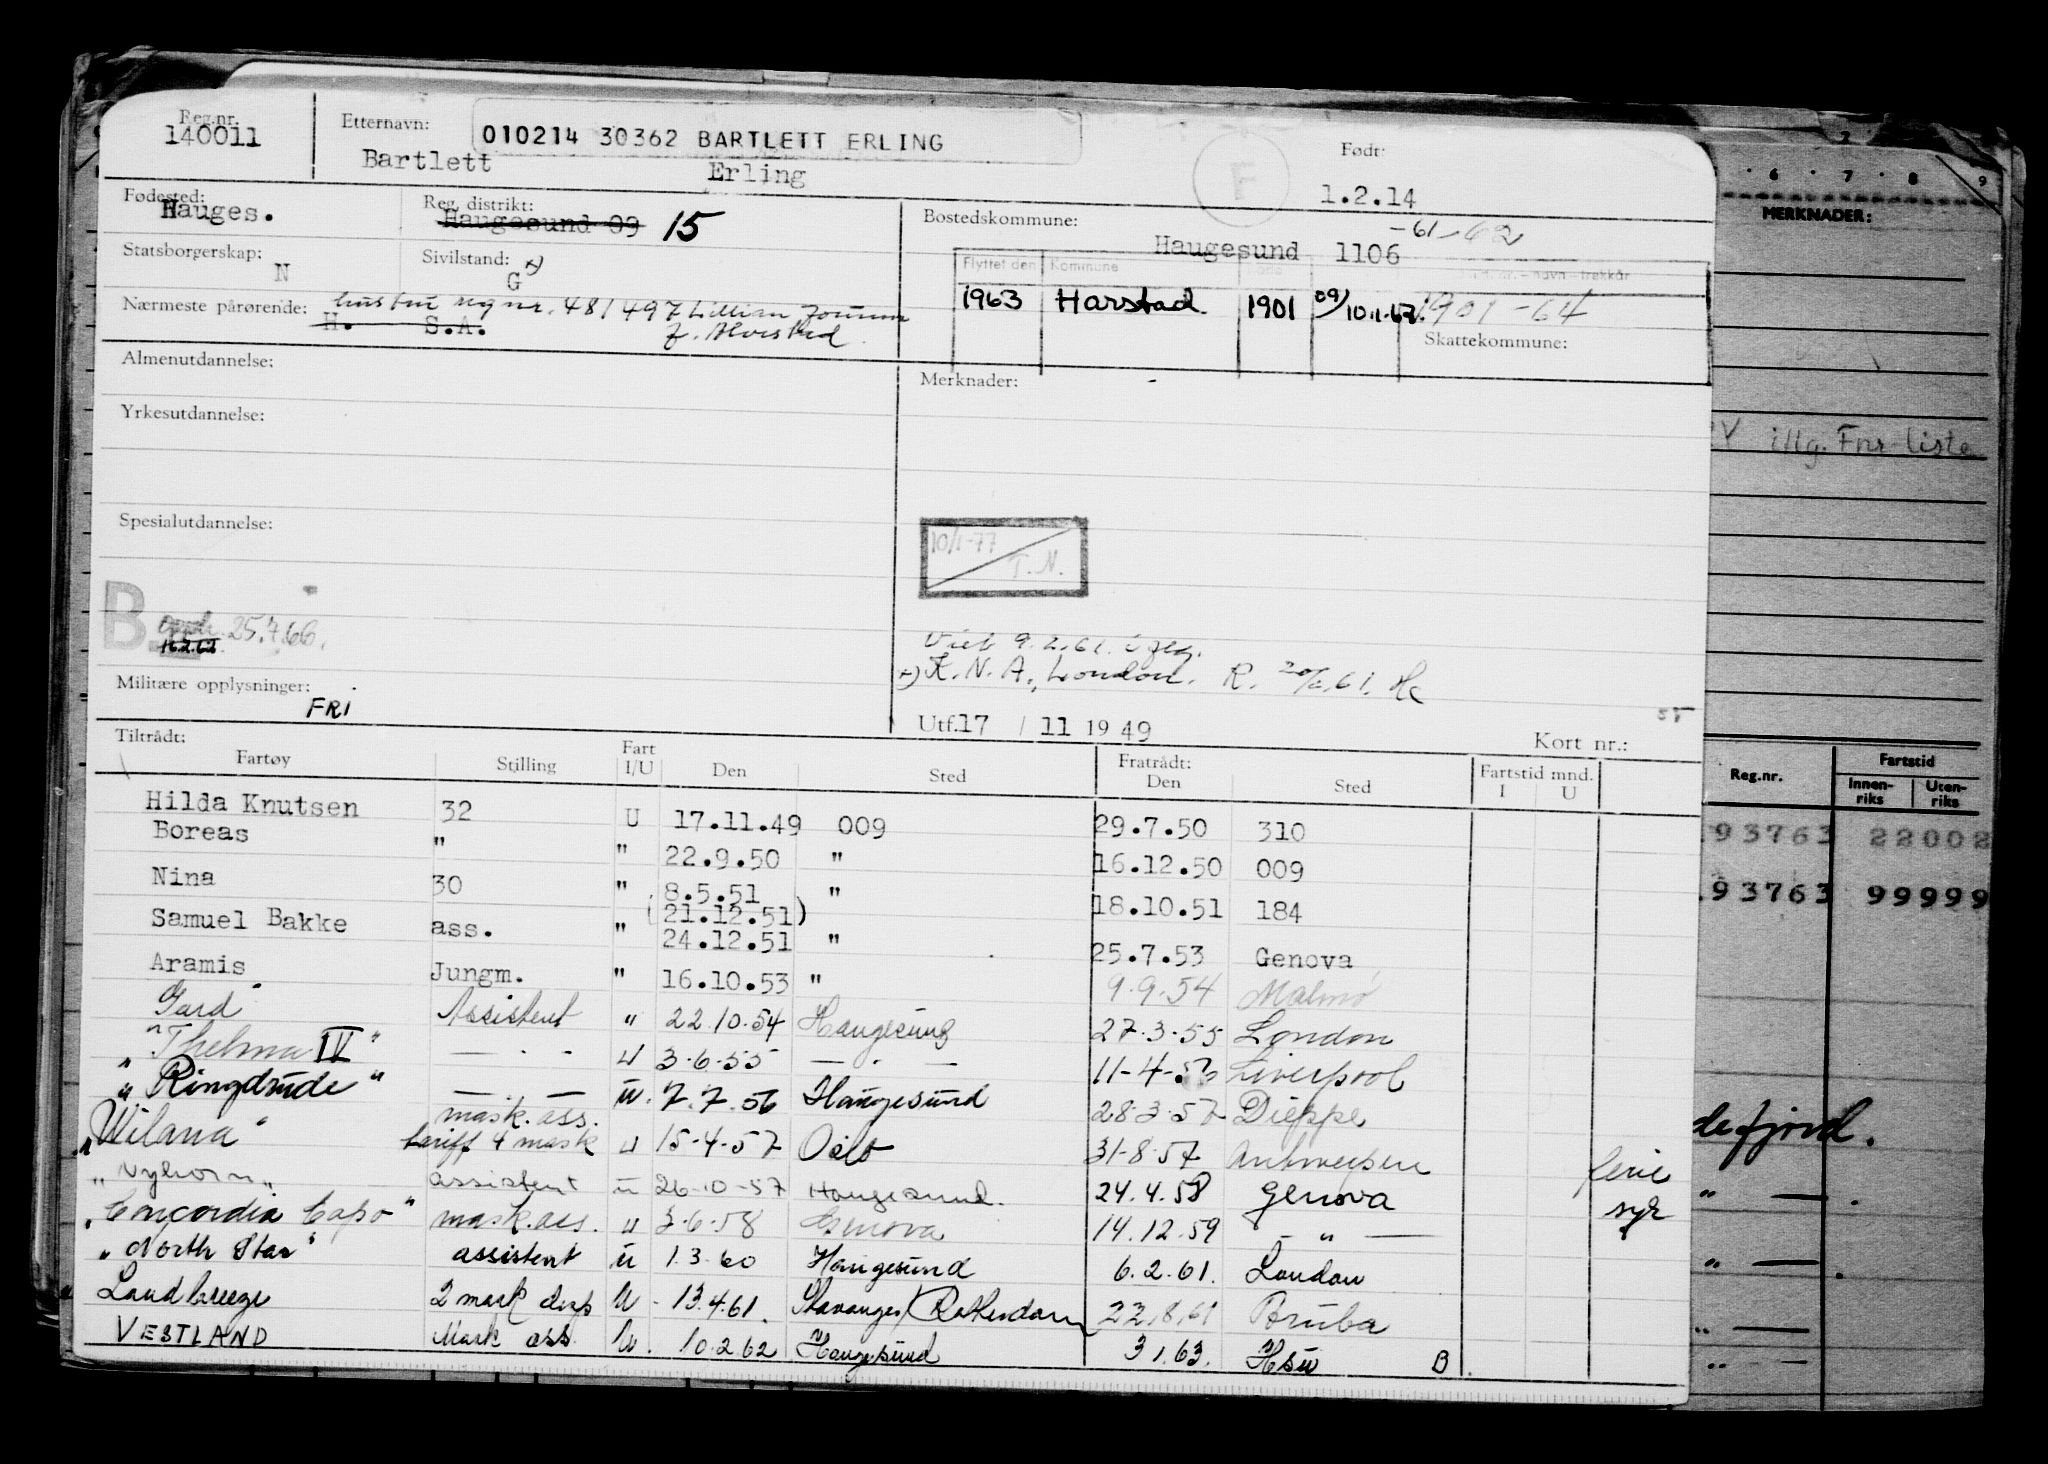 Reg.nr. 140011
Etternavn: 010214 30362 BARTLETT ERLING
Bartlett Erling
F
Født: 1.2.14
Fødested: Hauges.
Reg. distrikt: Haugesund 09 15
Bostedskommune: Haugesund 1106 -61-62
Statsborgerskap: N
Sivilstand: G x)
Flyttet den Kommune
1963 Harstad. 1901 09/10.11.67. 1901-64
Nærmeste pårørende: hustru reg nr. 481497 Lillian
H. S.A.
Skattekommune:
Almenutdannelse:
Merknader:
Yrkesutdannelse:
Spesialutdannelse:
10/1-77
T.N.
B 25.7.66.
16.2.62
9.2.61.
x) K.N.A., London. R. 61.
Militære opplysninger: FRI
Utf. 17 / 11 19 49
Kort nr.:
Tiltrådt: Fratrådt:
Fartøy Stilling Fart I/U Den Sted Den Sted Fartstid mnd. I U
Hilda Knutsen 32 U 17.11.49 009 29.7.50 310
Boreas " " 22.9.50 " 16.12.50 009
Nina 30 " 8.5.51 " 18.10.51 184
(21.12.51)
Samuel Bakke ass. " 24.12.51 " 25.7.53 Genova
Aramis Jungm. " 16.10.53 " 9.9.54 Malmö
Gard" Assistent " 22.10.54 Haugesund 27.3.55 London
"Thelma IV" — " — u 3-6-55 — " — 11-4-56 Liverpool
"Ringdrude" — — u. 7.7.56 Haugesund 28.3.57 Dieppe
"Wilana" mask.ass. tariff 4 mask u 15-4-57 Oslo 31-8-57 Antwerpen ferie
"Nyhorn" assistent u 26-10-57 Haugesund. 24.4.58 Genova syk
"Concordia Capo" mask.ass. u 3-6-58 Genova 14.12.59 — " —
"North Star" assistent u 1.3.60 Haugesund 6.2.61. London
Landbreeze 2 mask disp U - 13.4.61. Stavanger/Rotterdam 22.8.61 Aruba
VESTLAND Mask ass. U. 10.2.62 Haugesund 3 1.63. Hsu B.
6 . 7 . 8 . 9
MERKNADER:
illg. Fnr liste
Reg.nr. Fartstid
Innenriks Utenriks
.93763 22002
.93763 99999
defjord.
" — .
" — .
" —
" —